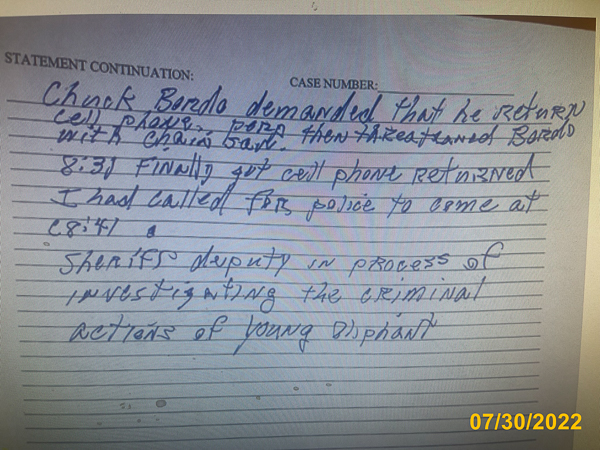 STATEMENT CONTINUATION:
CASE NUMBER:
Chuck Bordo demanded that he return
cell phone. perp then threateaned Bordo
with chain saw.
8:31 Finally got cell phone returned
I had called for police to come at
(8:41
Sheriff deputy in process of
investigating the criminal
actions of young Oliphant
07/30/2022